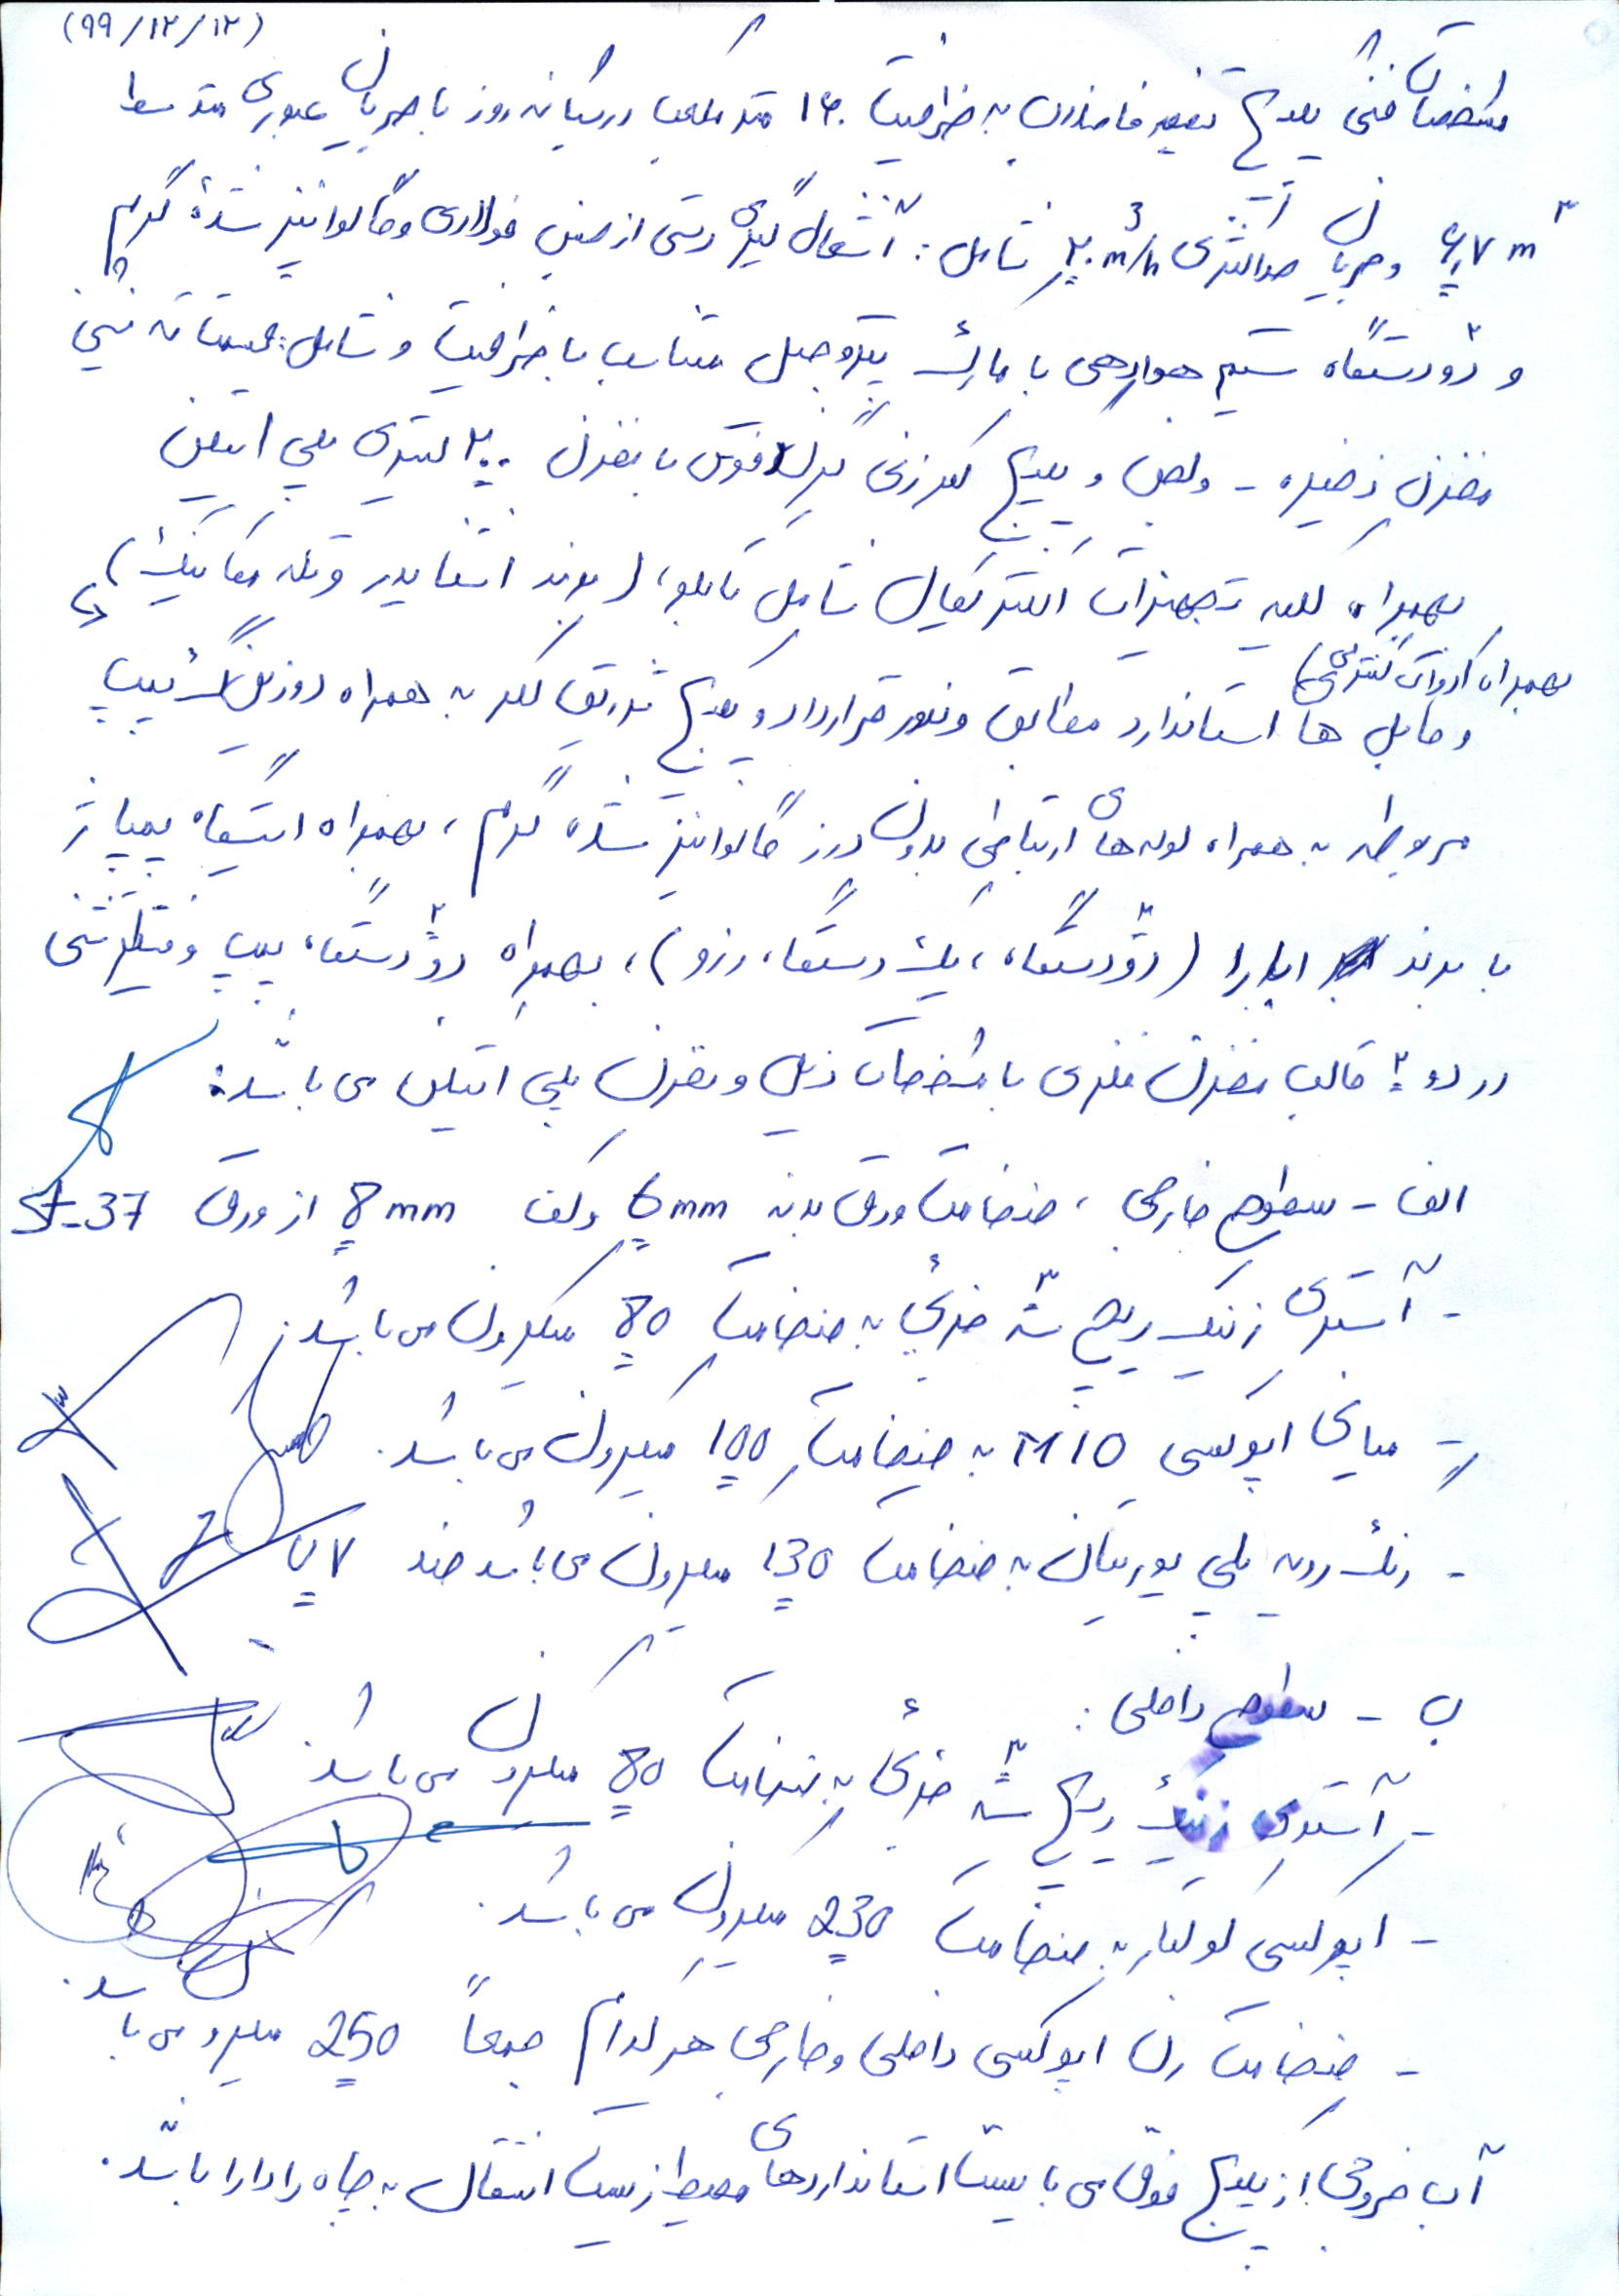 (۹۹/۱۲/۱۲)
مشخصات فنی پکیج تصفیه فاضلاب به ظرفیت ۱۶۰ متر مکعب در شبانه روز با جریان عبوری متوسط
۶٫۷ m³ و جریان حداکثری ۲۰ m³/h شامل : آشغال گیری دستی از جنس فولادی و گالوانیز شده گرم
و دو دستگاه سیستم هوادهی با مارک متناسب با ظرفیت و شامل : قسمت ته نشینی
مخزن ذخیره - و لجن و پکیج کلرزنی با مخزن ۲۰۰ لیتری پلی اتیلن
بهمراه کلیه تجهیزات الکتریکال شامل تابلو، (برند اشنایدر و تله مکانیک)
بهمراه ادوات کنترلی)
و کابل ها استاندارد مطابق وندور قرارداد و پکیج تزریق کلر به همراه دوزینگ پمپ
مربوطه به همراه لوله های ارتباطی بدون درز گالوانیز شده گرم ، بهمراه ایستگاه پمپاژ
با برند ابارا (دو ۲ دستگاه ، یک دستگاه رزرو) ، بهمراه دو ۲ دستگاه پمپ و فیلتر شنی
در دو ۲ قالب مخزن فلزی با مشخصات ذیل و مخزن پلی اتیلن می باشد :
الف - سطوح خارجی ، ضخامت ورق بدنه 6 mm و کف 8 mm از ورق St-37
- آستری زینک ریچ سه ۳ جزئی به ضخامت 80 میکرون می باشد .
- میانی اپوکسی MIO به ضخامت 100 میکرون می باشد .
- رنگ رویه پلی یورتان به ضخامت 130 میکرون می باشد ضد UV
ب - سطوح داخلی :
- آستری زینک ریچ سه ۳ جزئی به ضخامت 80 میکرون می باشد .
- اپوکسی کولتار به ضخامت 230 میکرون می باشد .
- ضخامت رنگ اپوکسی داخلی و خارجی هر کدام جمعاً 250 میکرون می باشد .
آب خروجی از پکیج فوق می بایست استانداردهای محیط زیست انتقال به چاه را دارا باشد .